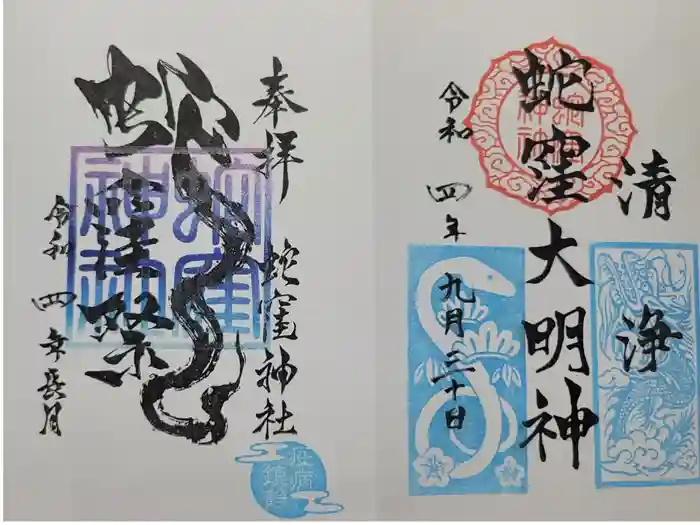 清
浄
蛇窪大明神
令和
四年
九月三十日
奉拝
蛇窪神社
蛇窪
神社
令和四年長月
疫病
鎮静